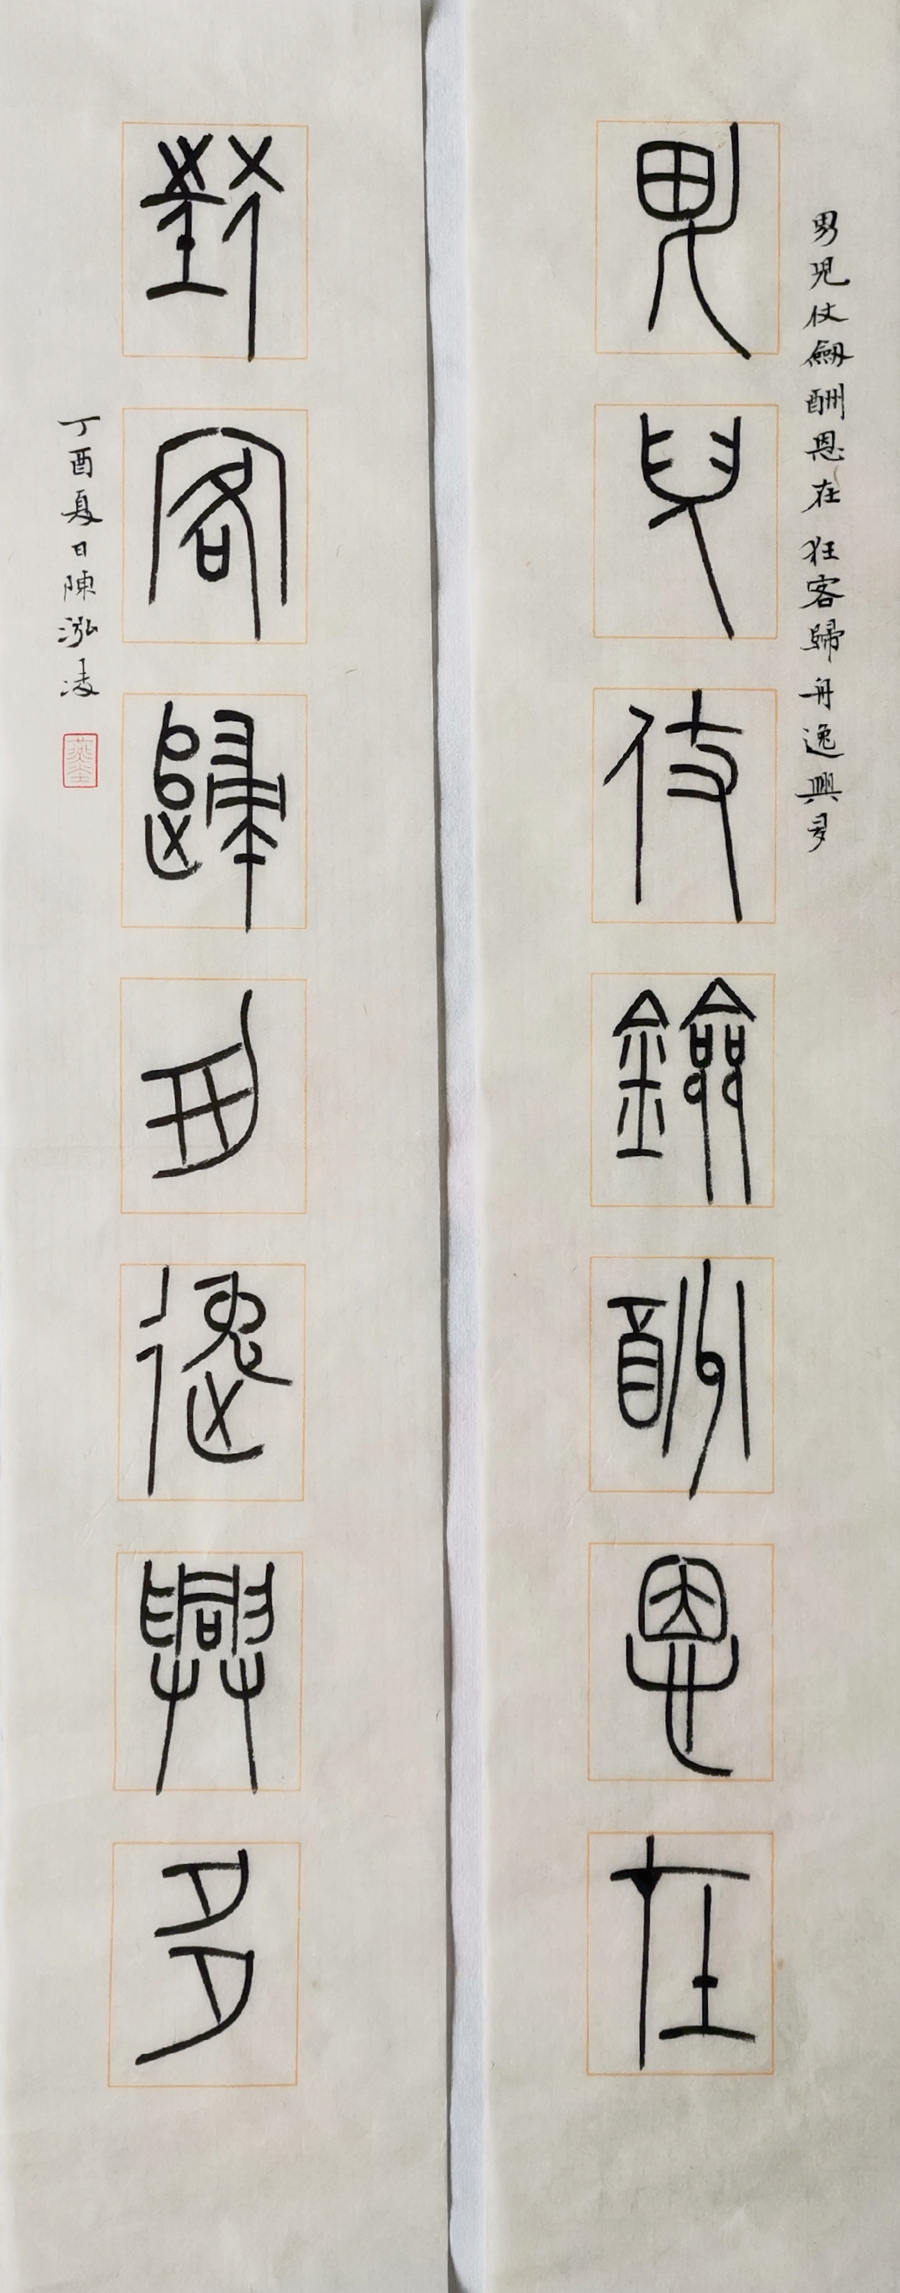 男兒仗劒酬恩在狂客歸舟逸興多
男兒仗劍酬恩在
狂客歸舟逸興多
丁酉夏日陳泓凌